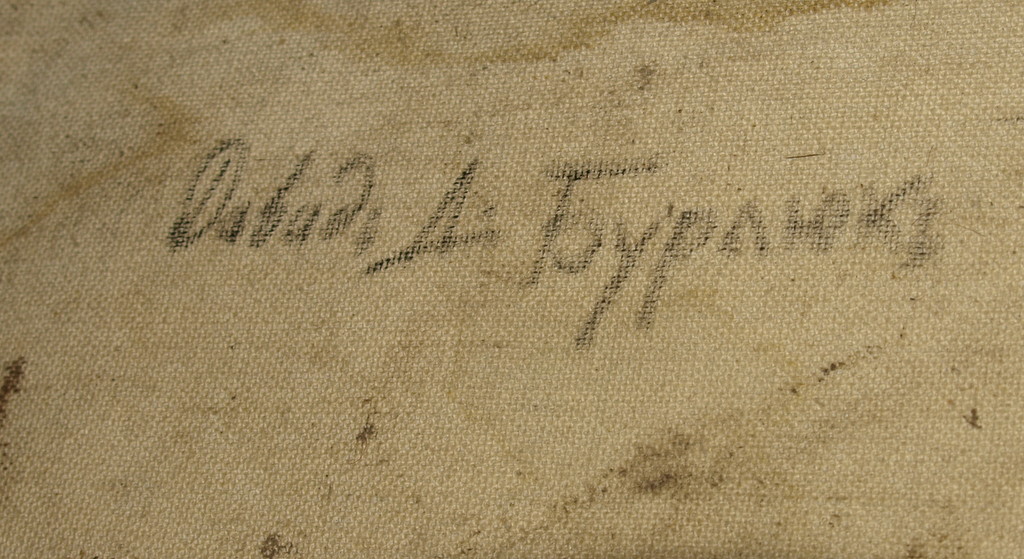 Давидъ Д. Бурлюкъ